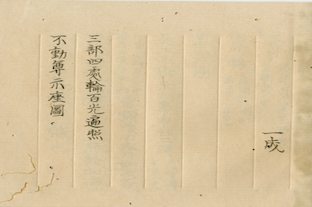 一咲
三部四處輪百光遍照
不動尊示座圖